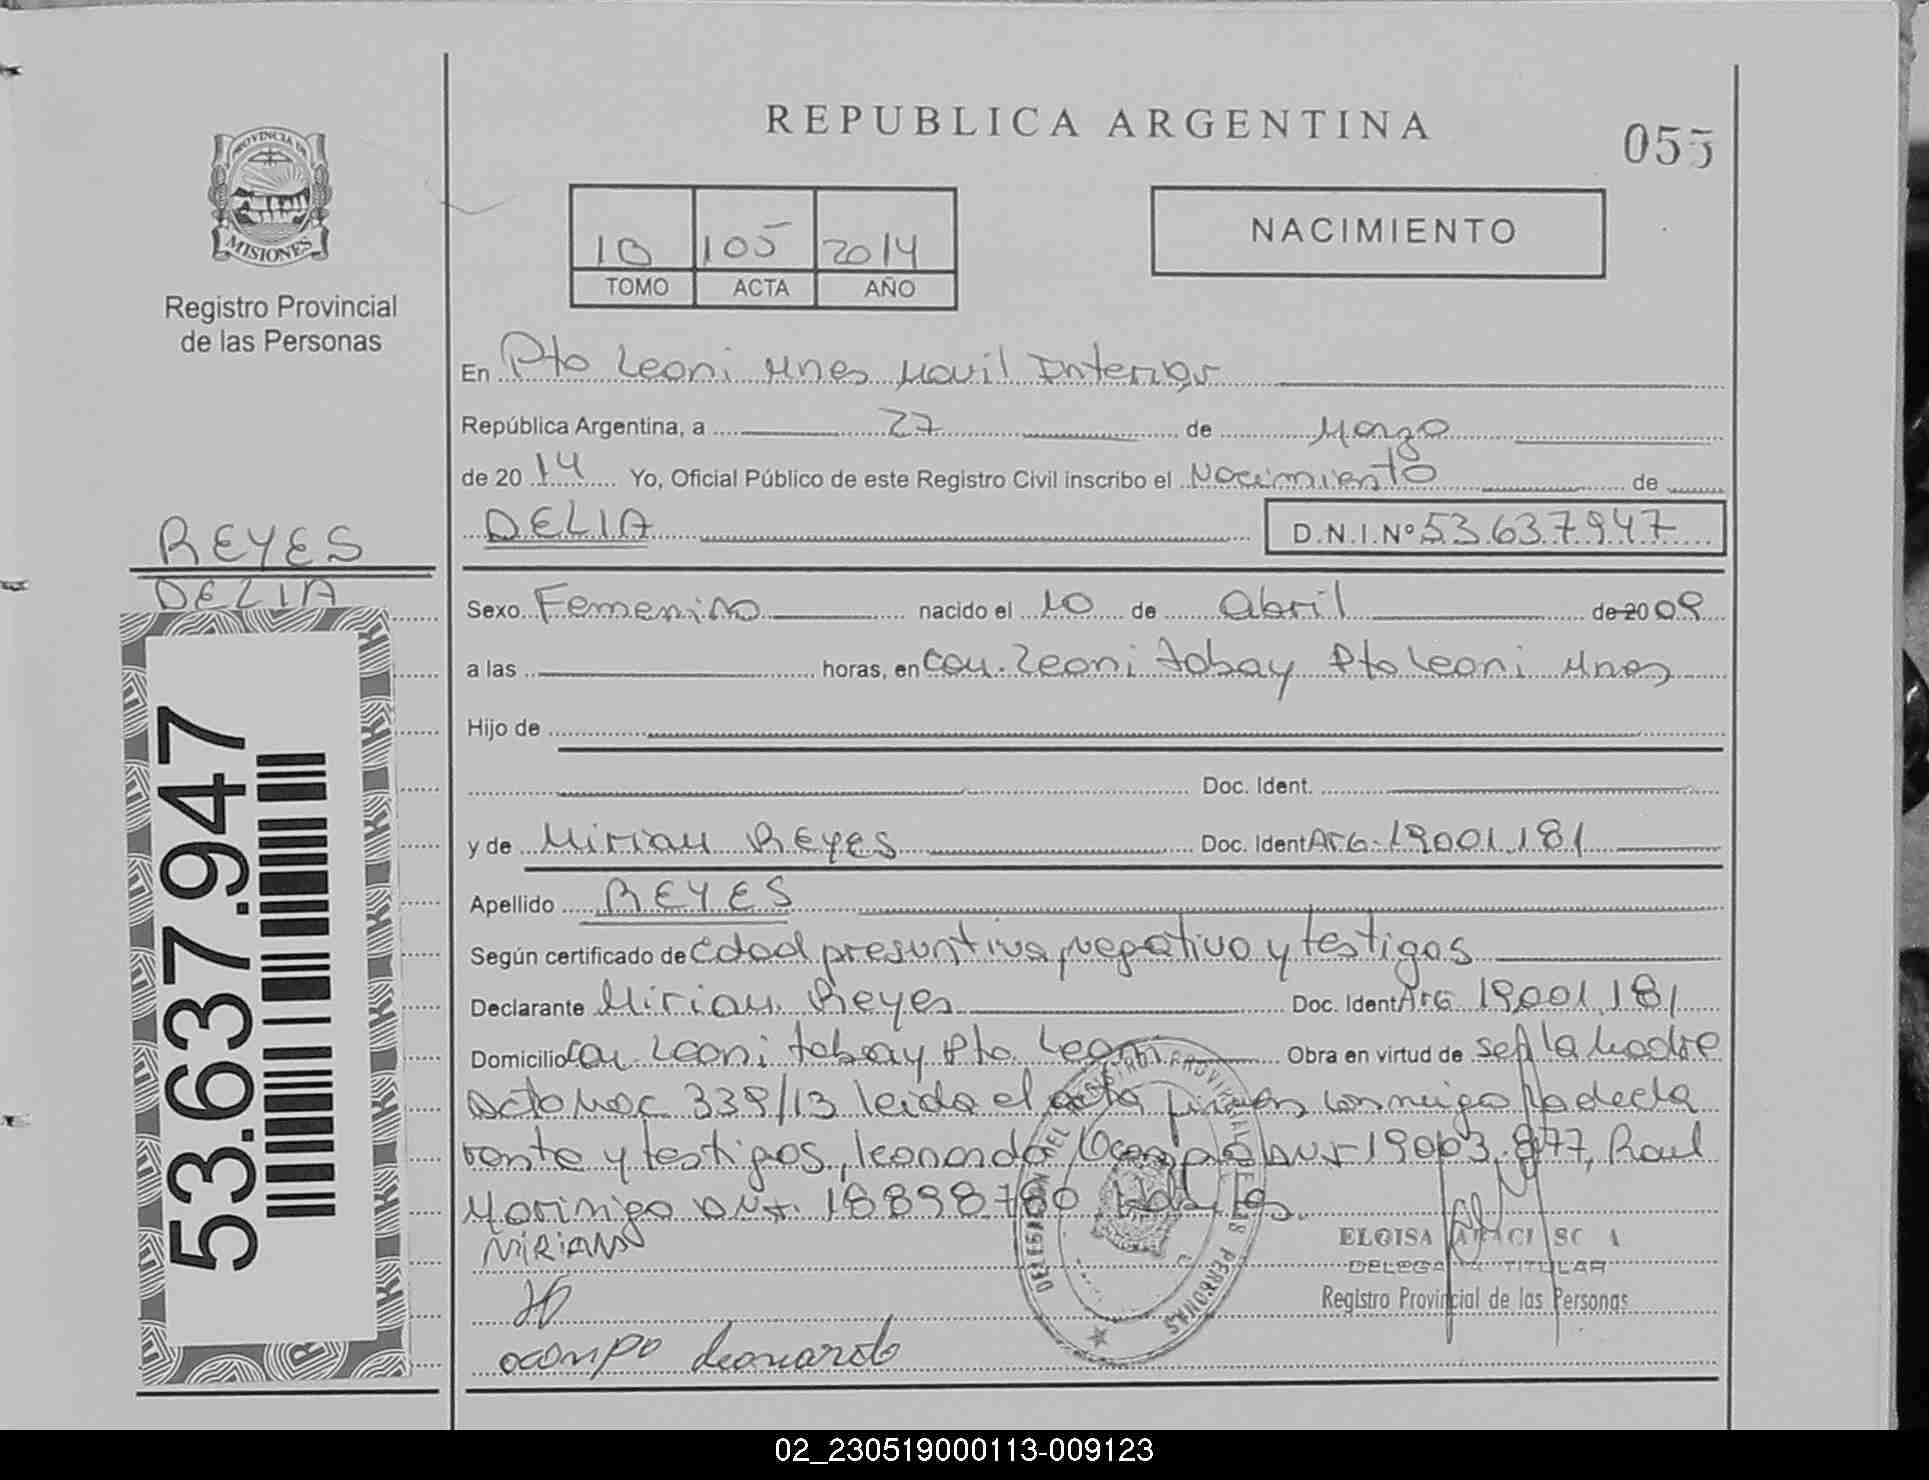 REPUBLICA ARGENTINA
055
PROVINCIA DE
MISIONES
Registro Provincial
de las Personas
10 105 2014
TOMO ACTA AÑO
NACIMIENTO
En Pto Leoni Mnes Movil Interior
República Argentina, a 27 de Marzo
de 2014 Yo, Oficial Público de este Registro Civil inscribo el Nacimiento de
DELIA D.N.I.Nº 53.637.947
REYES
DELIA
53.637.947
Sexo Femenino nacido el 10 de Abril de 20 09
a las horas, en Com. Leoni Tabay Pto Leoni Mnes
Hijo de
Doc. Ident.
y de Miriam REYES Doc. Ident ARG. 19001.181
Apellido REYES
Según certificado de edad presuntiva, negativo y testigos
Declarante Miriam Reyes Doc. Ident ARG 19.001.181
Domicilio Com. Leoni Tabay Pto Leoni Obra en virtud de ser la Madre
339/13 leida el acta firman conmigo la decla
rante y testigos, Leonardo Ocampo DNI 19003.877, Raul
Morinigo DNI. 18898780
MIRIAM
ocampo Leonardo
DELEGACION DEL REGISTRO PROVINCIAL DE LAS PERSONAS
ELOISA
DELEGADA TITULAR
Registro Provincial de las Personas
02_230519000113-009123